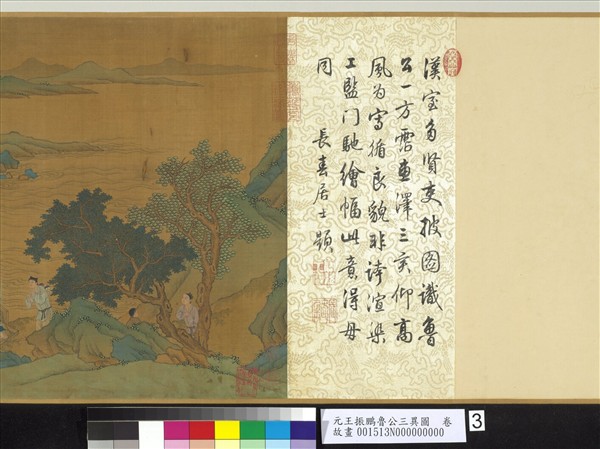 漢室多賢吏披圖識魯
公一方霑惠澤三異仰高
風為寫循良貌非誇渲染
工監門馳繪幅此意得毋
同 長春居士題
元王振鵬魯公三異圖 卷
故畫001513N000000000
3